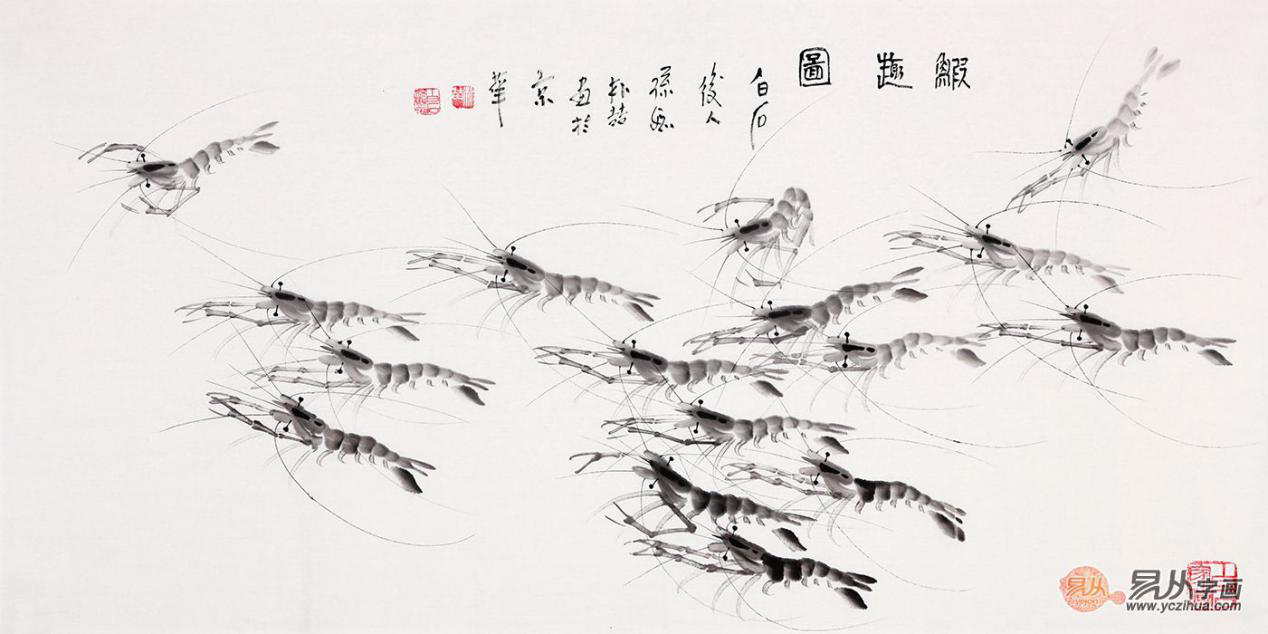 鰕趣圖
白石
後人
孫
畫於
京
華
易从
易从字画
www.yczihua.com